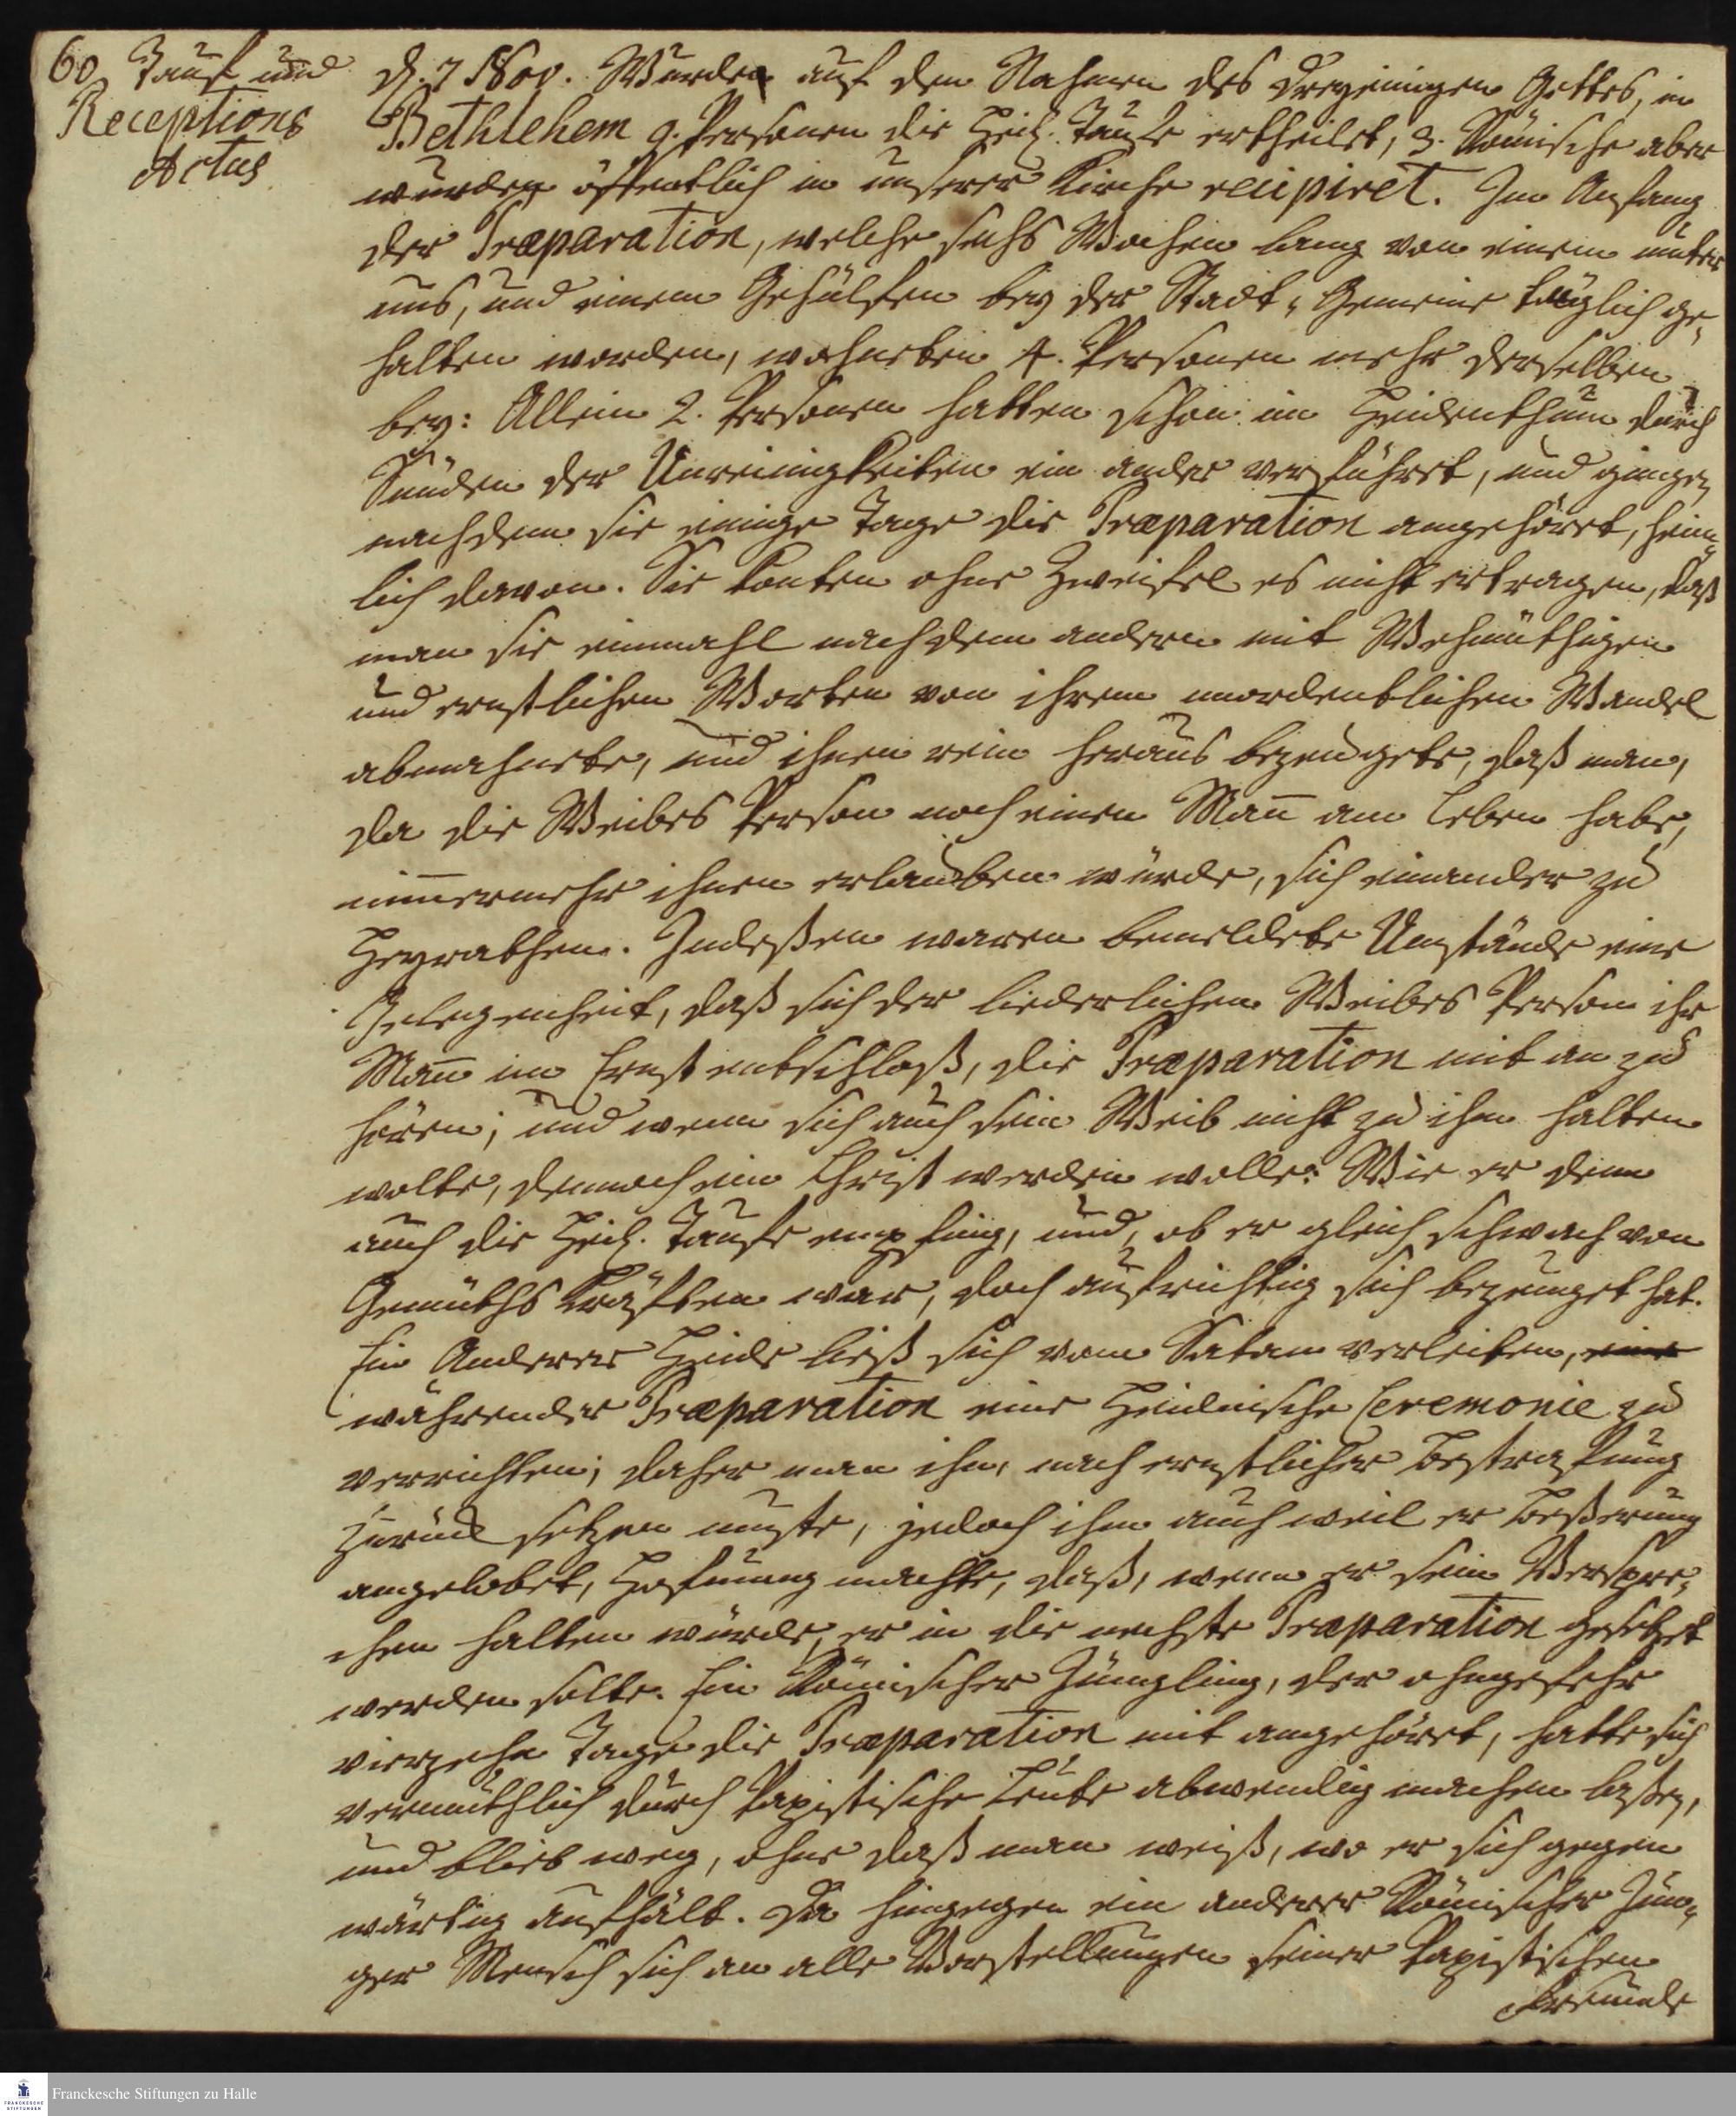 60, Tauf und
Receptions
Actus
d. 7 Nov. Wurden auf den Nahmen des Dreyeinigen Gottes, in
Bethlehem 9. Personen die Heil. Taufe ertheilet, 3. Römische aber
wurden öffentlich in unserer Kirche recipiret. Im Anfang
der Præparation, welche sechs Wochen lang von einem unter
uns, und einem Gehülfen bey der Stadt-Gemeine täglich ge-
halten worden, wohneten 4. Personen mehr derselben
bey: Allein 2. Personen hatten schon im Heidenthum durch
Sünden der Unreinigkeiten ein ander verführet, und gingen
nachdem sie einige Tage die Præparation angehöret, heim-
lich davon. Sie konten ohne Zweifel es nicht ertragen, daß
man sie einmahl nach dem andern mit Wehmüthigen
und ernstlichen Worten von ihrem unordentlichen Wandel
abmahnete, und ihnen rein heraus bezeugete, daß man,
da die Weibes Person noch einen Mann am Leben habe,
nimmermehr ihnen erlauben würde, sich einander zu
Heyrathen. Indeßen waren bemeldete Umstände eine
Gelegenheit, daß sich der liederlichen Weibes Person ihr
Mann im Ernst entschloß, die Præparation mit an zu
hören; und wenn sich auch sein Weib nicht zu ihm halten
wolte, dennoch ein Christ werden wolle: Wie er denn
auch die Heil. Taufe empfing, und, ob er gleich schwach von
Gemüths Kräften war, doch aufrichtig sich bezeuget hat.
Ein Anderer Heide ließ sich vom Satan verleiten, eine
währender Præparation eine Heidnische Ceremonie zu
verrichten; daher man ihn, nach ernstlicher Bestrafung
zurück setzen muste, jedoch ihm auch weil er Beßerung
angelobet, Hofnung machte, daß, wenn er sein Verspre-
chen halten würde, er in die nechste Præparation gesetzet
werden solte. Ein Römischer Jüngling, der ohngefehr
vierzehn Tage die Præparation mit angehöret, hatte sich
vermuthlich durch Papistische Leute abwendig machen laßen,
und blieb weg, ohne daß man weiß, wo er sich gegen
wärtig aufhält. Da hingegen ein anderer Römischer Jun-
ger Mensch sich an alle Vorstellungen seiner Papistischen
Freunde
FRANCKESCHE
STIFTUNGEN
Franckesche Stiftungen zu Halle